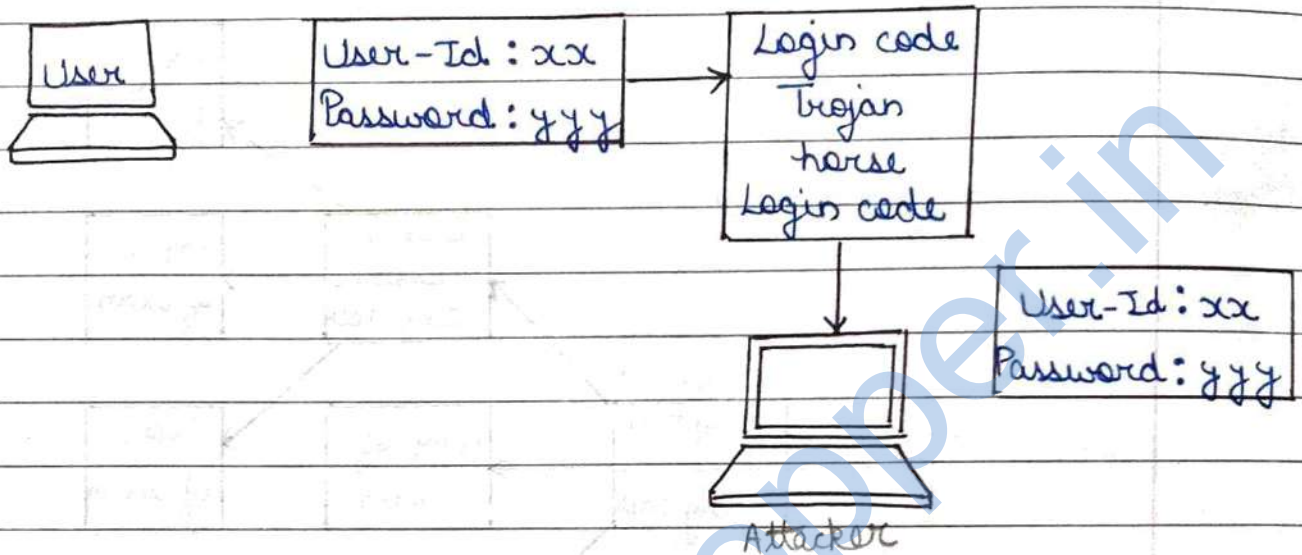 User
User-Id : xx
Password : yyy
Login code
Trojan
horse
Login code
User-Id : xx
Password : yyy
Attacker
pper.in